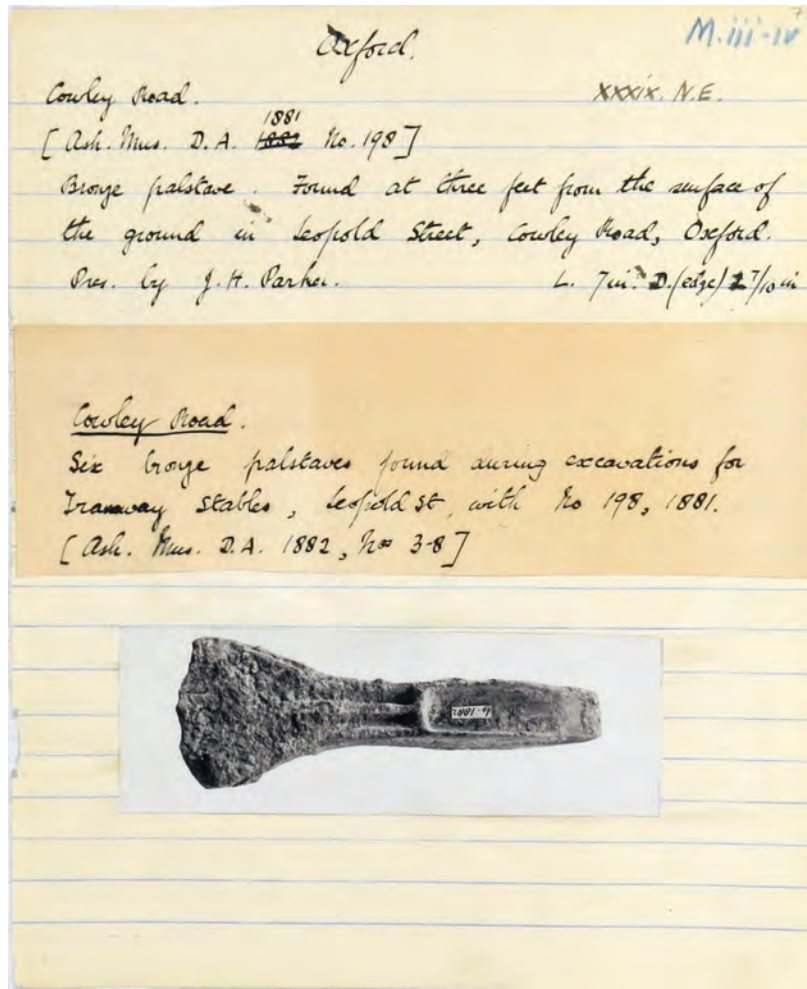 7
Oxford.
M.iii-iv
Cowley Road.
XXXIX. N.E.
1881
[ Ash. Mus. D.A. 1882 No. 198 ]
Bronze palstave. Found at three feet from the surface of
the ground in Leopold Street, Cowley Road, Oxford.
Pres. by J. H. Parker.
L. 7in. D. (edge) 2 7/10 in
Cowley Road.
Six bronze palstaves found during excavations for
Tramway Stables, Leopold St, with No 198, 1881.
[ Ash. Mus. D.A. 1882, Nos 3-8 ]